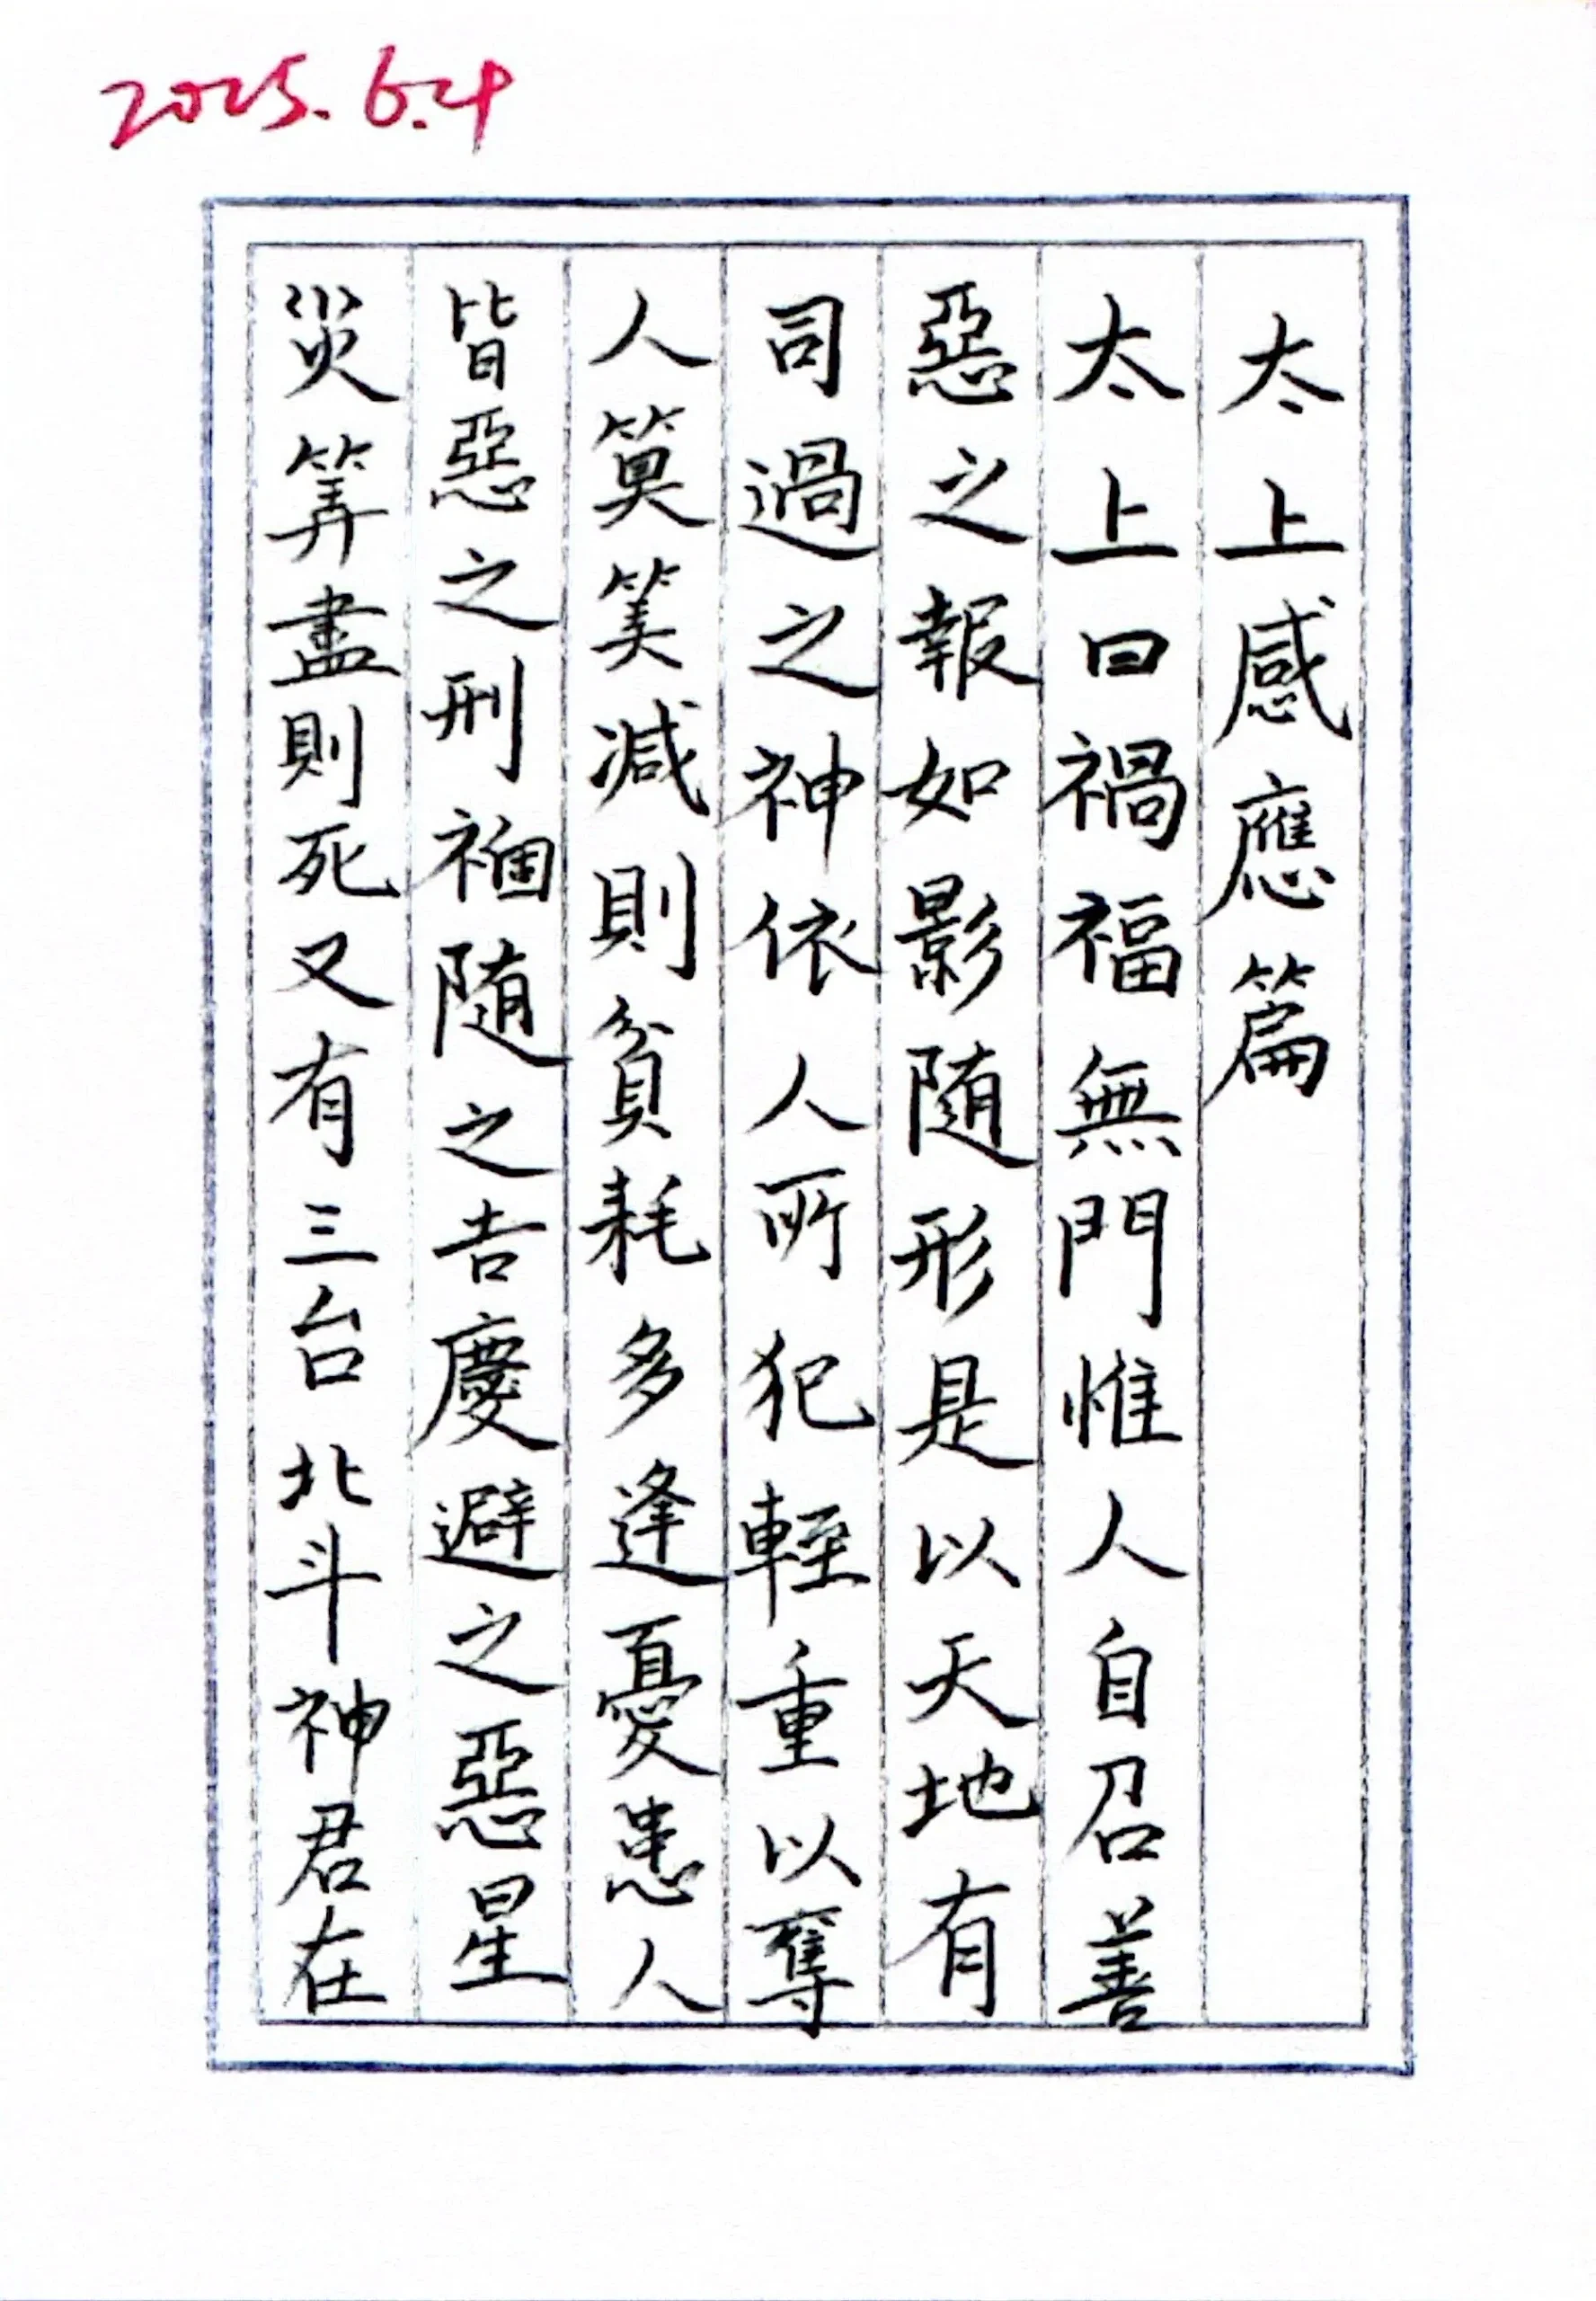 2025.6.4
太上感應篇
太上曰禍福無門惟人自召善
惡之報如影随形是以天地有
司過之神依人所犯輕重以奪
人筭筭减則貧耗多逢憂患人
皆惡之刑禍随之吉慶避之惡星
災筭盡則死又有三台北斗神君在